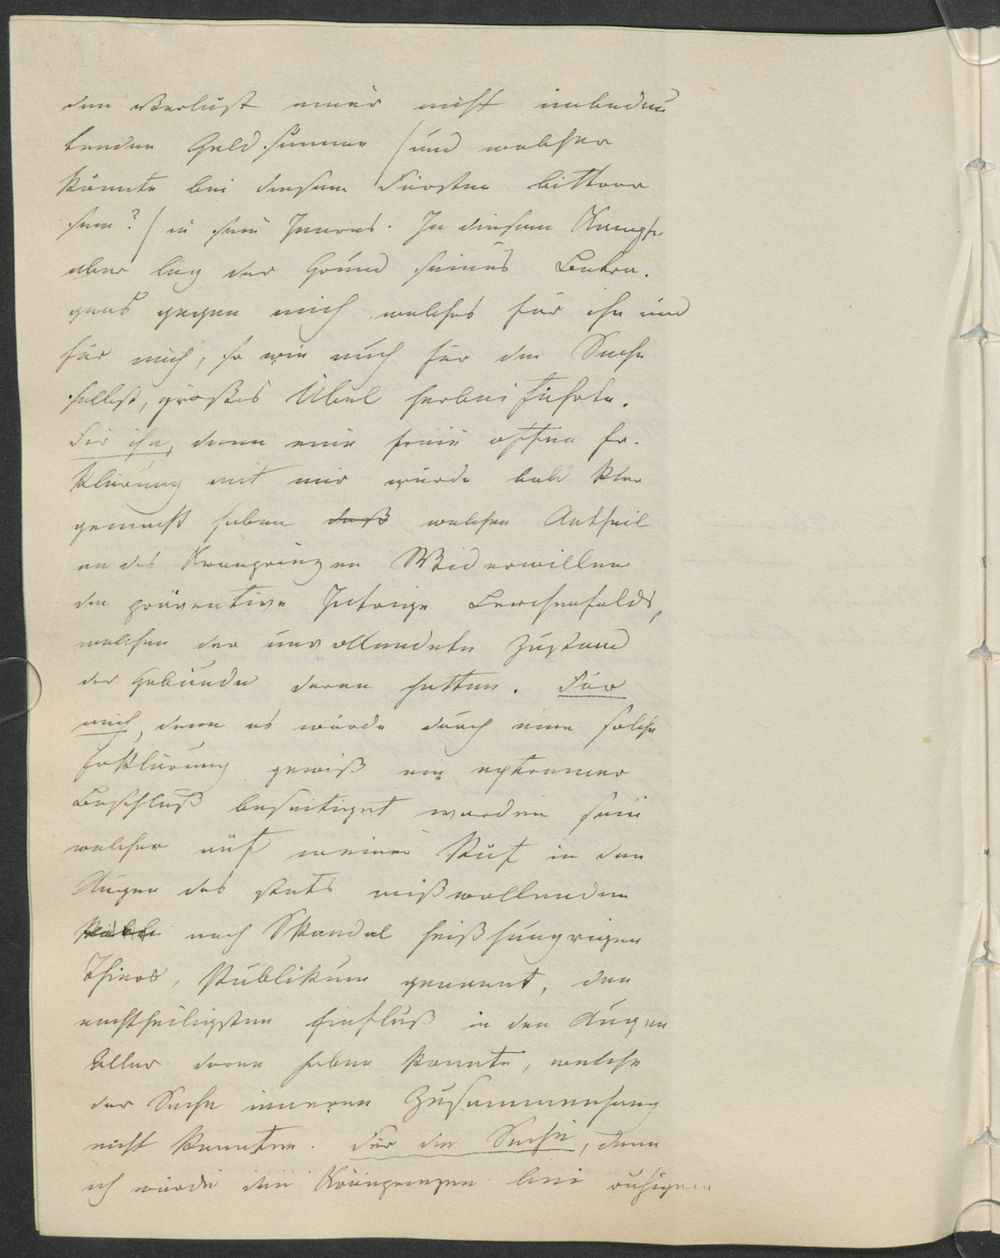 den Verlust einer nicht unbedeu
tenden Geldsumme (und welcher
könnte bei diesem Fürsten bitterer
sein?) in sein Inneres. In diesem Kampfe
aber lag der Grund seines Betra-
gens gegen mich welches für ihn und
für mich, so wie auch für die Sache
selbst, großes Übel herbei führte.
Für ihn, denn eine freie offene Er-
klärung mit mir würde bald klar
gemacht haben daß welchen Antheil
an des Kronprinzen Widerwillen
die präventive Intrige Lerchenfelds,
welchen der unvollendete Zustand
der Gebäude daran hatten. Für
mich, denn es würde durch eine solche
Erklärung gewiß ein extremer
Beschluß beseitiget worden sein
welcher auf meinen Ruf in den
Augen des stets mißwollenden
nach Skandal heißhungrigen
Thiers, Publikum genannt, den
nachtheiligsten Einfluß in den Augen
Aller deren haben konnte, welche
der Sache inneren Zusammenhang
nicht kannten. Für die Sache, denn
ich würde dem Kronprinzen bei ruhigem